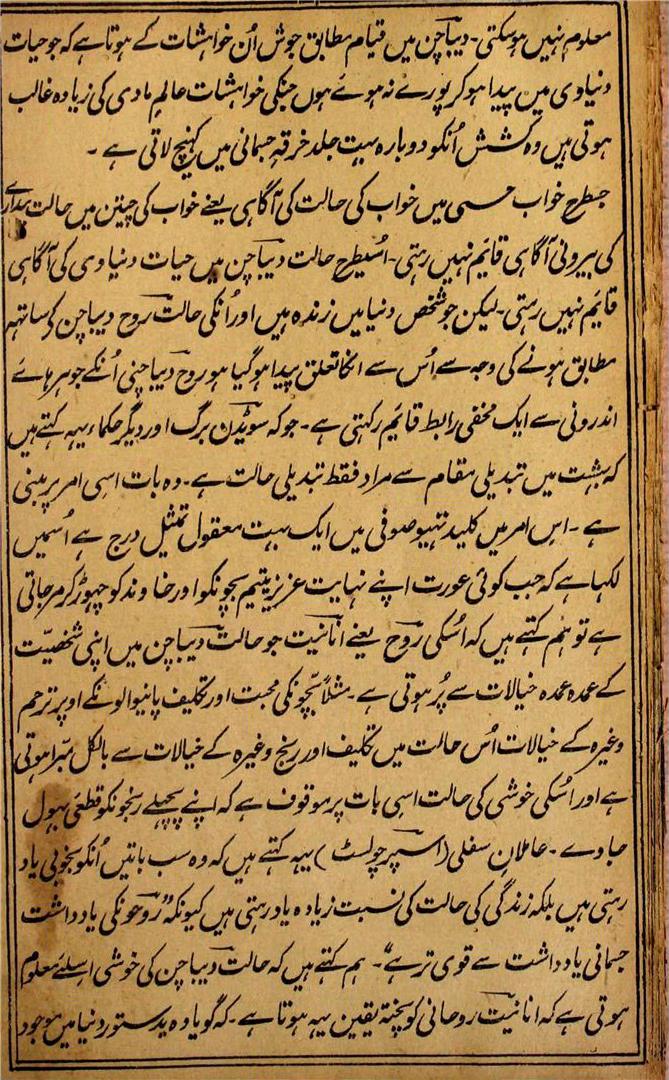 معلوم نہیں ہوسکتی۔ دیباچن میں قیام مطابق جوش اُن خواہشات کے ہوتا ہے کہ جو حیات
دنیاوی میں پیدا ہوکر پورے نہ ہوے ہوں جنکی خواہشات عالم مادی کی زیادہ غالب
ہوتی ہیں وہ کشش اُنکو دوبارہ بہت جلد خرقہ جسمانی میں کہنچ لاتی ہے ۔
جسطرح خواب حسی میں خواب کی حالت کی آگاہی یعنے خواب کی چیتن میں حالت بیداری
کی بیرونی آگاہی قایٔم نہیں رہتی۔ اُسیطرح حالت دیباچن میں حیات دنیاوی کی آگاہی
قایٔم نہیں رہتی۔ لیکن جو شخص دنیا میں زندہ ہیں اور اُنکی حالت روح دیباچن کے ساتہہ
مطابق ہونے کی وجہ سے اُس سے انکا تعلق پیدا ہوگیا ہو روح دیباچنی اُنکے جوہر ہاے
اندرونی سے ایک مخفی رابط قایٔم رکہتی ہے۔ جو کہ سویٔڈن برگ اور دیگر حکماء یہہ کہتے ہیں
کہ بہشت میں تبدیلی مقام سے مراد فقط تبدیلی حالت ہے۔ وہ بات اسی امر پر مبنی
ہے ۔ اس امر میں کلید تہیو صوفی میں ایک بہت معقول تمثیل درج ہے اُسمیں
لکہا ہے کہ جب کوئی عورت اپنے نہایت عزیز یتیم بچونکو اور خاوند کو چہوڑ کر مرجاتی
ہے تو ہم کہتے ہیں کہ اُسکی روح یعنے انانیت جو حالت دیباچن میں اپنی شخصیّت
کے عمدہ عمدہ خیالات سے پُر ہوتی ہے۔ مثلاً بچّونکی محبت اور تکلیف پانیوالونکے اوپر ترحم
وغیرہ کے خیالات اُس حالت میں تکلیف اور رنج وغیرہ کے خیالات سے بالکل مبّرا ہوتی
ہے اور اُسکی خوشی کی حالت اسی بات پر موقوف ہے کہ اپنے پچہلے رنجونکو قطعی بہول
جاوے ۔ عاملان سفلی (اسپرچولسٹ) یہہ کہتے ہیں کہ وہ سب باتیں اُنکو بخوبی یاد
رہتی ہیں بلکہ زندگی کی حالت کی نسبت زیادہ یاد رہتی ہیں کیونکہ "روحونکی یادداشت
جسمانی یادداشت سے قوی تر ہے"۔ ہم کہتے ہیں کہ حالت دیباچن کی خوشی اسلیٔے معلوم
ہوتی ہے کہ انانیت روحانی کو پختہ یقین یہہ ہوتا ہے۔ کہ گویا وہ بدستور دنیا میں موجود